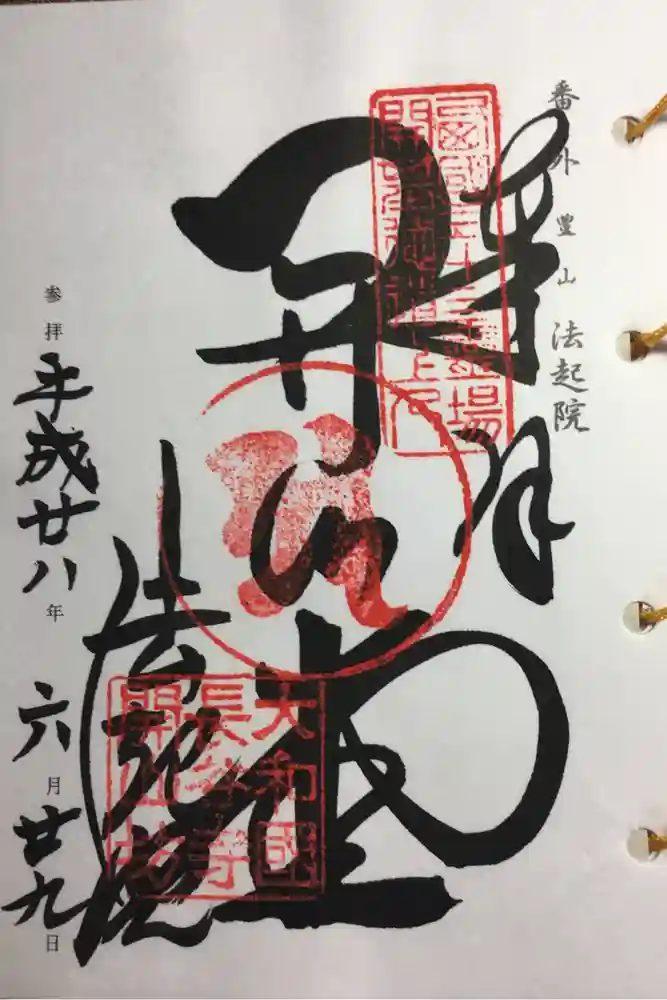 番外 豊山 法起院
奉拝
西國三十三霊場
開基徳道上人
開山堂
大和國
長谷寺
開山坊
法起院
参拝 平成廿八年 六月 廿九日